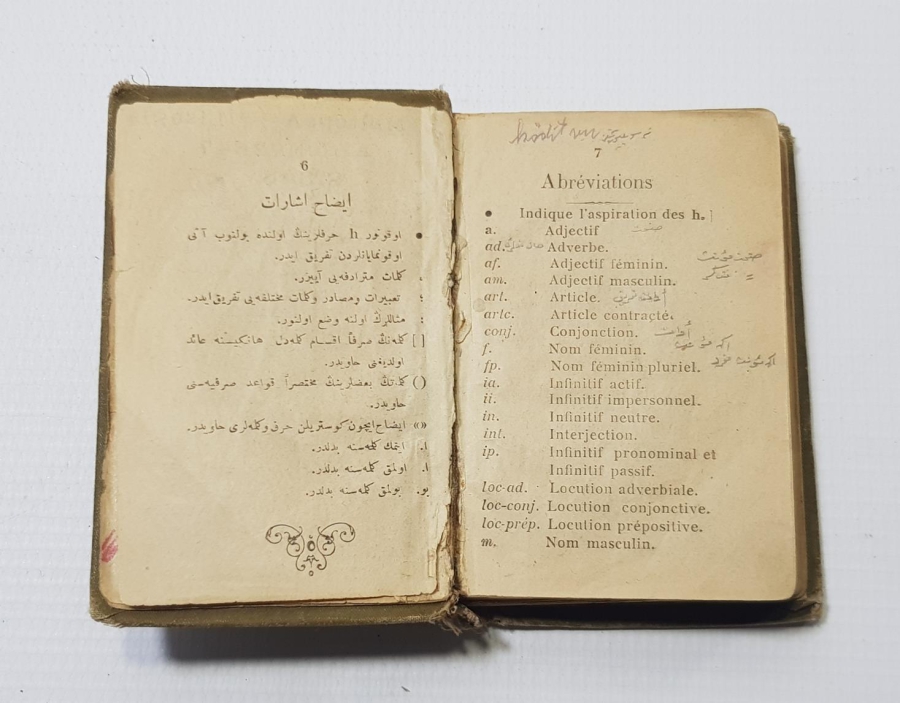 6
ايضاح اشارات
• اوقونور h حرفلرينڭ اولنده بولنوب آتى
اوقونمايانلردن تفريق ايدر.
، كلمات مترادفه‌يى آييرر.
؛ تعبيرات ومصادر وكلمات مختلفه‌يى تفريق ايدر.
: مثاللرڭ اولنه وضع اولنور.
[ ] كلمه‌نڭ صرفاً اقسام كلمه‌دن هانكيسنه عائد
اولديغنى حاويدر.
( ) كلماتڭ بعضلرينڭ مختصراً قواعد صرفيه‌سنى
حاويدر.
«» ايضاح ايچون كوستريلن حرف وكلمه‌لرى حاويدر.
ا. ايتمك كلمه‌سنه بدلدر.
ا. اولمق كلمه‌سنه بدلدر.
بو. بولمق كلمه‌سنه بدلدر.
7
Abréviations
• Indique l'aspiration des h.
a. Adjectif
ad. Adverbe.
af. Adjectif féminin.
am. Adjectif masculin.
art. Article.
artc. Article contracté.
conj. Conjonction.
f. Nom féminin.
fp. Nom féminin pluriel.
ia. Infinitif actif.
ii. Infinitif impersonnel.
in. Infinitif neutre.
int. Interjection.
ip. Infinitif pronominal et
Infinitif passif.
loc-ad. Locution adverbiale.
loc-conj. Locution conjonctive.
loc-prép. Locution prépositive.
m. Nom masculin.